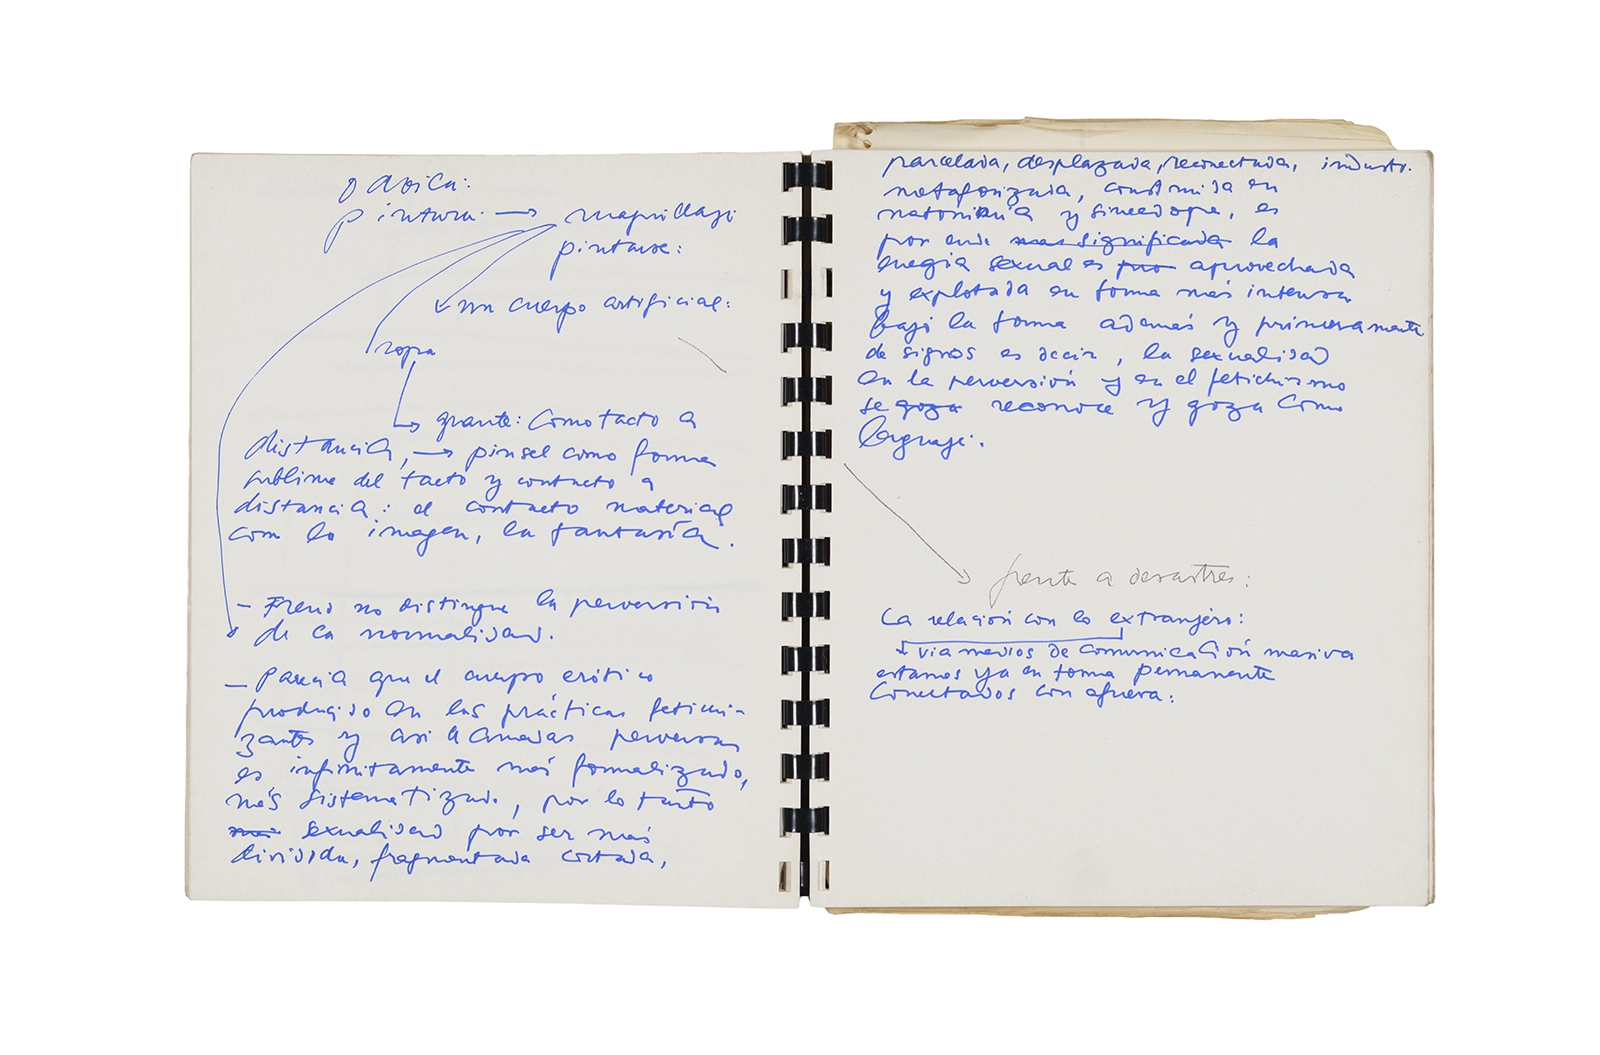 pintura: → maquillaje
pintarse:
un cuerpo artificial:
ropa
guante: Como tacto a
distancia, → pinsel como forma
sublime del tacto y contacto a
distancia: el contacto material
con la imagen, la fantasía.
- Freud no distingue la perversión
de la normalidad.
- Parecía que el cuerpo erótico
producido en las prácticas fetichi-
zantes y así llamadas perversas
es infinitamente más formalizado,
más sistematizado, por lo tanto
sexualidad por ser más
dividida, fragmentada cortada,
parcelada, desplazada, reconectada,
metaforizada, construida en
metonimia y sinecdope, es
por ende mas significada la
enegia sexual es aprovechada
y explotada en forma más intensa
bajo la forma además y primeramente
de signos es decir, la sexualidad
en la perversión y en el fetichismo
se goza reconoce y goza como
lenguaje.
frente a desastres:
La relación con lo extranjero:
via medios de comunicación masiva
estamos ya en forma permanente
conectados con afuera: